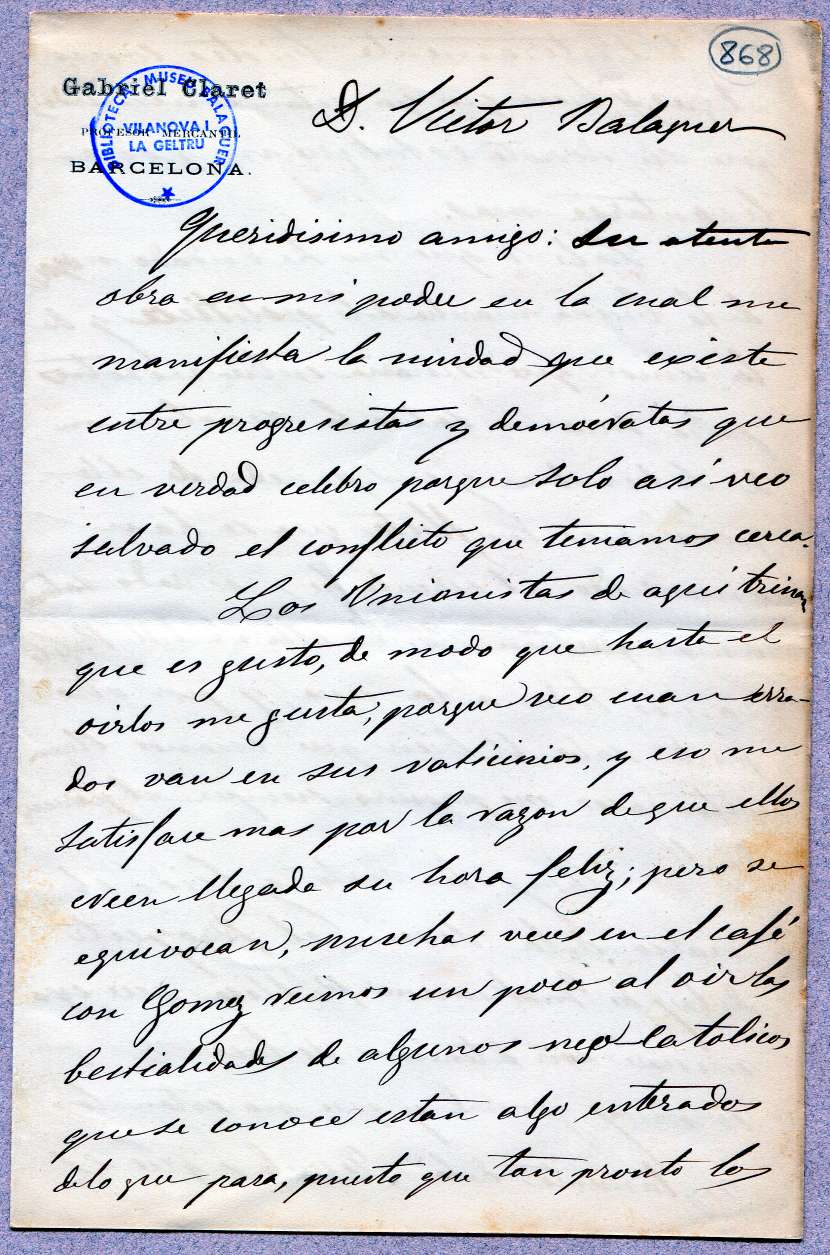 868
Gabriel Claret
PROFESOR MERCANTIL
BARCELONA.
BIBLIOTECA MUSEU BALAGUER
VILANOVA I
LA GELTRU
D. Victor Balaguer
Queridisimo amigo: Su atenta
obra en mi poder en la cual me
manifiesta la unidad que existe
entre progresistas y demócratas que
en verdad celebro porque solo así veo
salvado el conflicto que teniamos cerca.
Los Unionistas de aquí trinan
que es gusto, de modo que hasta el
oirlos me gusta, porque veo cuan erra-
dos van en sus vaticinios, y eso me
satisface mas por la razon de que ellos
creen llegada su hora feliz; pero se
equivocan, muchas veces en el café
con Gomez reimos un poco al oir las
bestialidades de algunos neo-catolicos
que se conoce estan algo enterados
de lo que pasa, puesto que tan pronto los